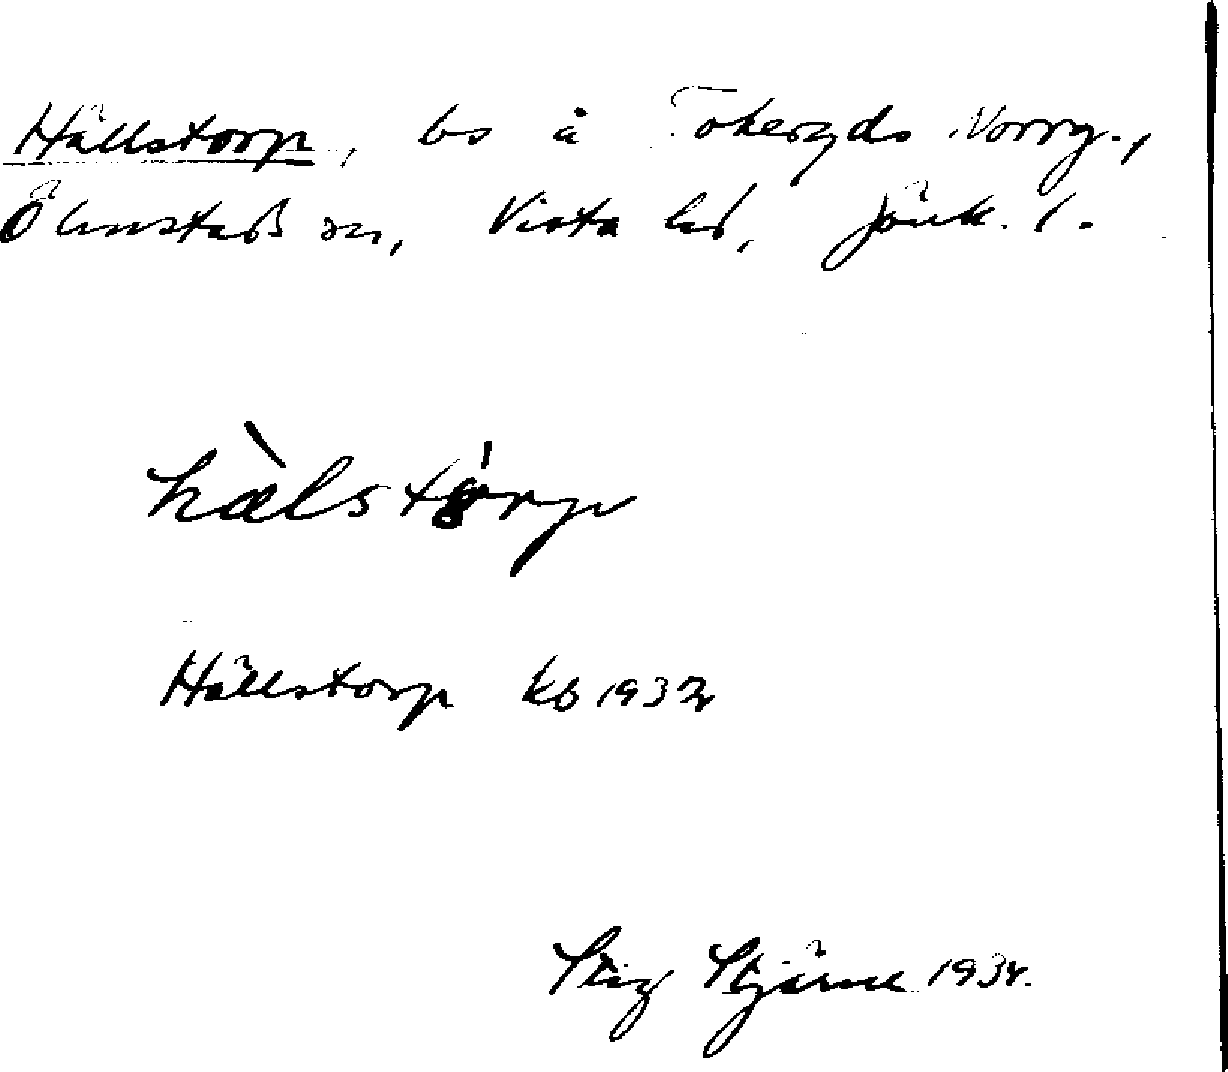 Hällstorp, bs å Tokeryds Norrg.,
Ölmstads sn, Vista hd, Jönk. l.
hàlstórp
Hällstorp kb 1932
Stig Stjärne 1934.